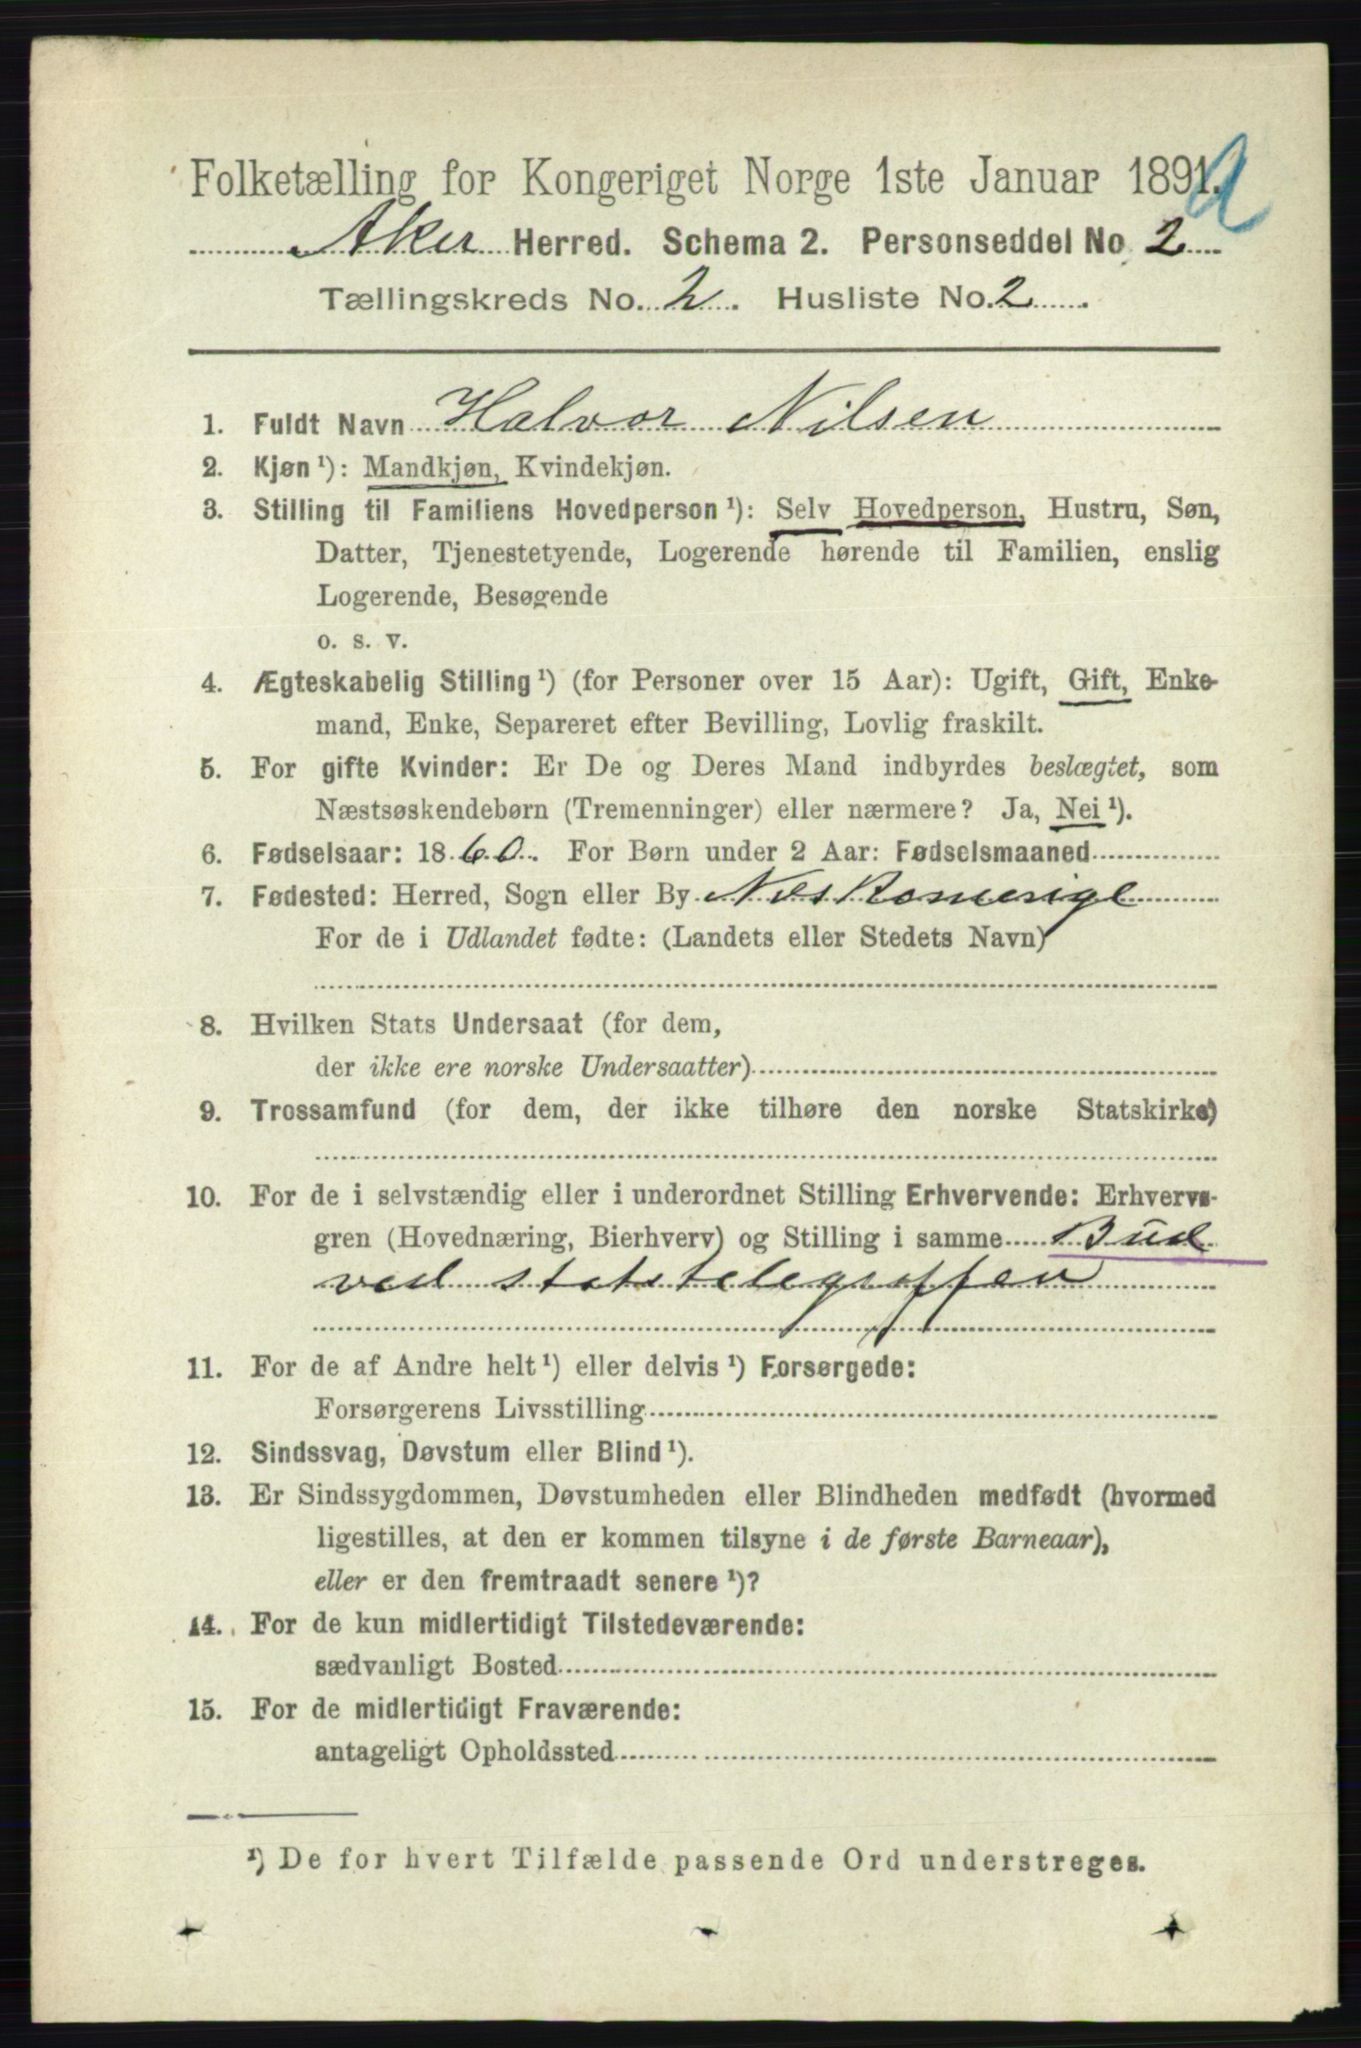 Folketælling for Kongeriget Norge 1ste Januar 1891.
Aker Herred. Schema 2. Personseddel No 2
Tællingskreds No. 2. Husliste No. 2
1. Fuldt Navn Halvor Nilsen
2. Kjøn ¹): Mandkjøn, Kvindekjøn.
3. Stilling til Familiens Hovedperson ¹): Selv Hovedperson, Hustru, Søn,
Datter, Tjenestetyende, Logerende hørende til Familien, enslig
Logerende, Besøgende
o. s. v.
4. Ægteskabelig Stilling ¹) (for Personer over 15 Aar): Ugift, Gift, Enke-
mand, Enke, Separeret efter Bevilling, Lovlig fraskilt.
5. For gifte Kvinder: Er De og Deres Mand indbyrdes beslægtet, som
Næstsøskendebørn (Tremenninger) eller nærmere? Ja, Nei ¹).
6. Fødselsaar: 1860. For Børn under 2 Aar: Fødselsmaaned
7. Fødested: Herred, Sogn eller By Nes Romerige
For de i Udlandet fødte: (Landets eller Stedets Navn)
8. Hvilken Stats Undersaat (for dem,
der ikke ere norske Undersaatter)
9. Trossamfund (for dem, der ikke tilhøre den norske Statskirke)
10. For de i selvstændig eller i underordnet Stilling Erhvervende: Erhvervs-
gren (Hovednæring, Bierhverv) og Stilling i samme Bud
ved statstelegraffen
11. For de af Andre helt ¹) eller delvis ¹) Forsørgede:
Forsørgerens Livsstilling
12. Sindssvag, Døvstum eller Blind ¹).
13. Er Sindssygdommen, Døvstumheden eller Blindheden medfødt (hvormed
ligestilles, at den er kommen tilsyne i de første Barneaar),
eller er den fremtraadt senere ¹)?
14. For de kun midlertidigt Tilstedeværende:
sædvanligt Bosted
15. For de midlertidigt Fraværende:
antageligt Opholdssted
¹) De for hvert Tilfælde passende Ord understreges.